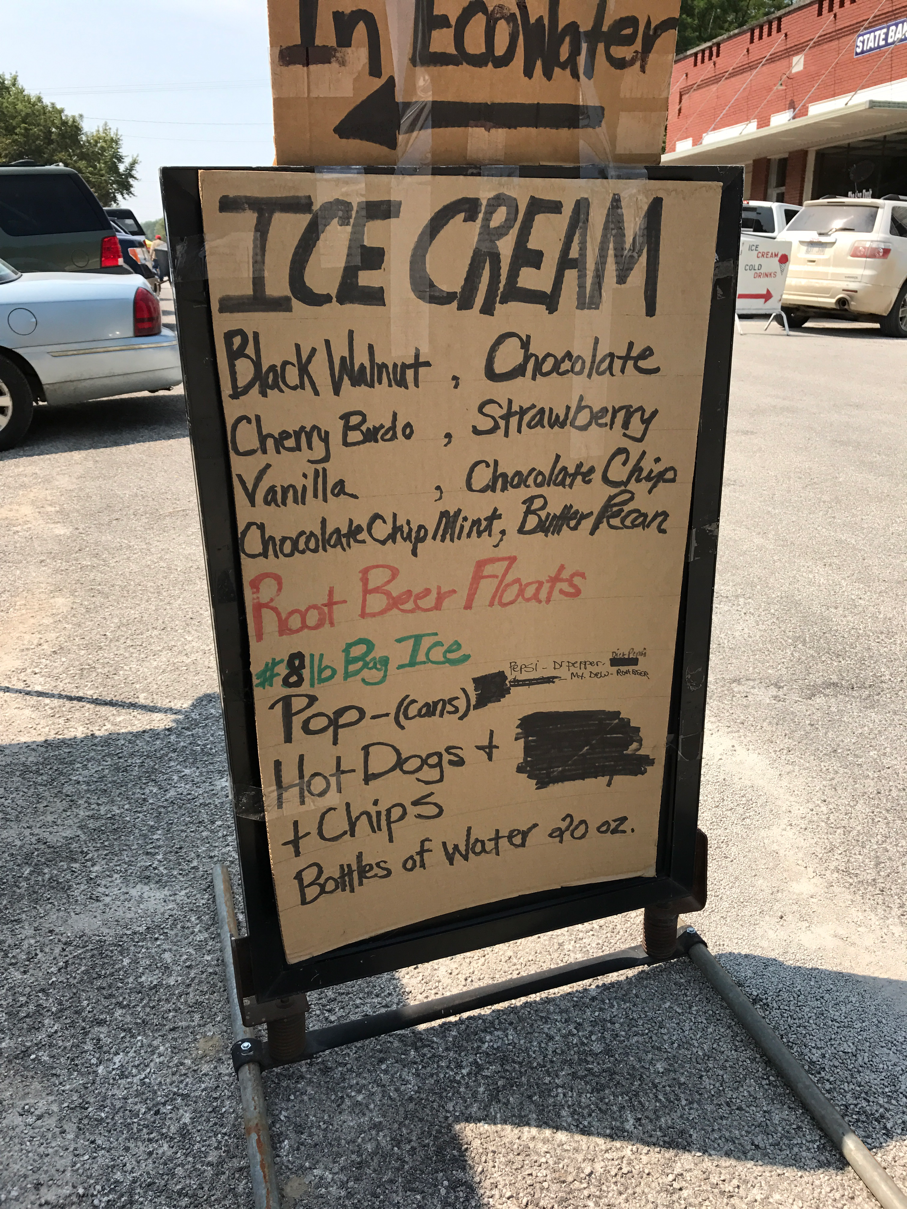 In EcoWater
STATE BAN
ICE CREAM
Black Walnut , Chocolate
Cherry Bordo , Strawberry
Vanilla , Chocolate Chip
Chocolate Chip Mint, Butter Pecan
Root Beer Floats
#8 lb Bag Ice
Diet Pepsi
Pepsi - Dr pepper -
Mt. Dew -
Pop - (cans)
Hot Dogs +
+ Chips
Bottles of Water 20 oz.
ICE
CREAM
COLD
DRINKS